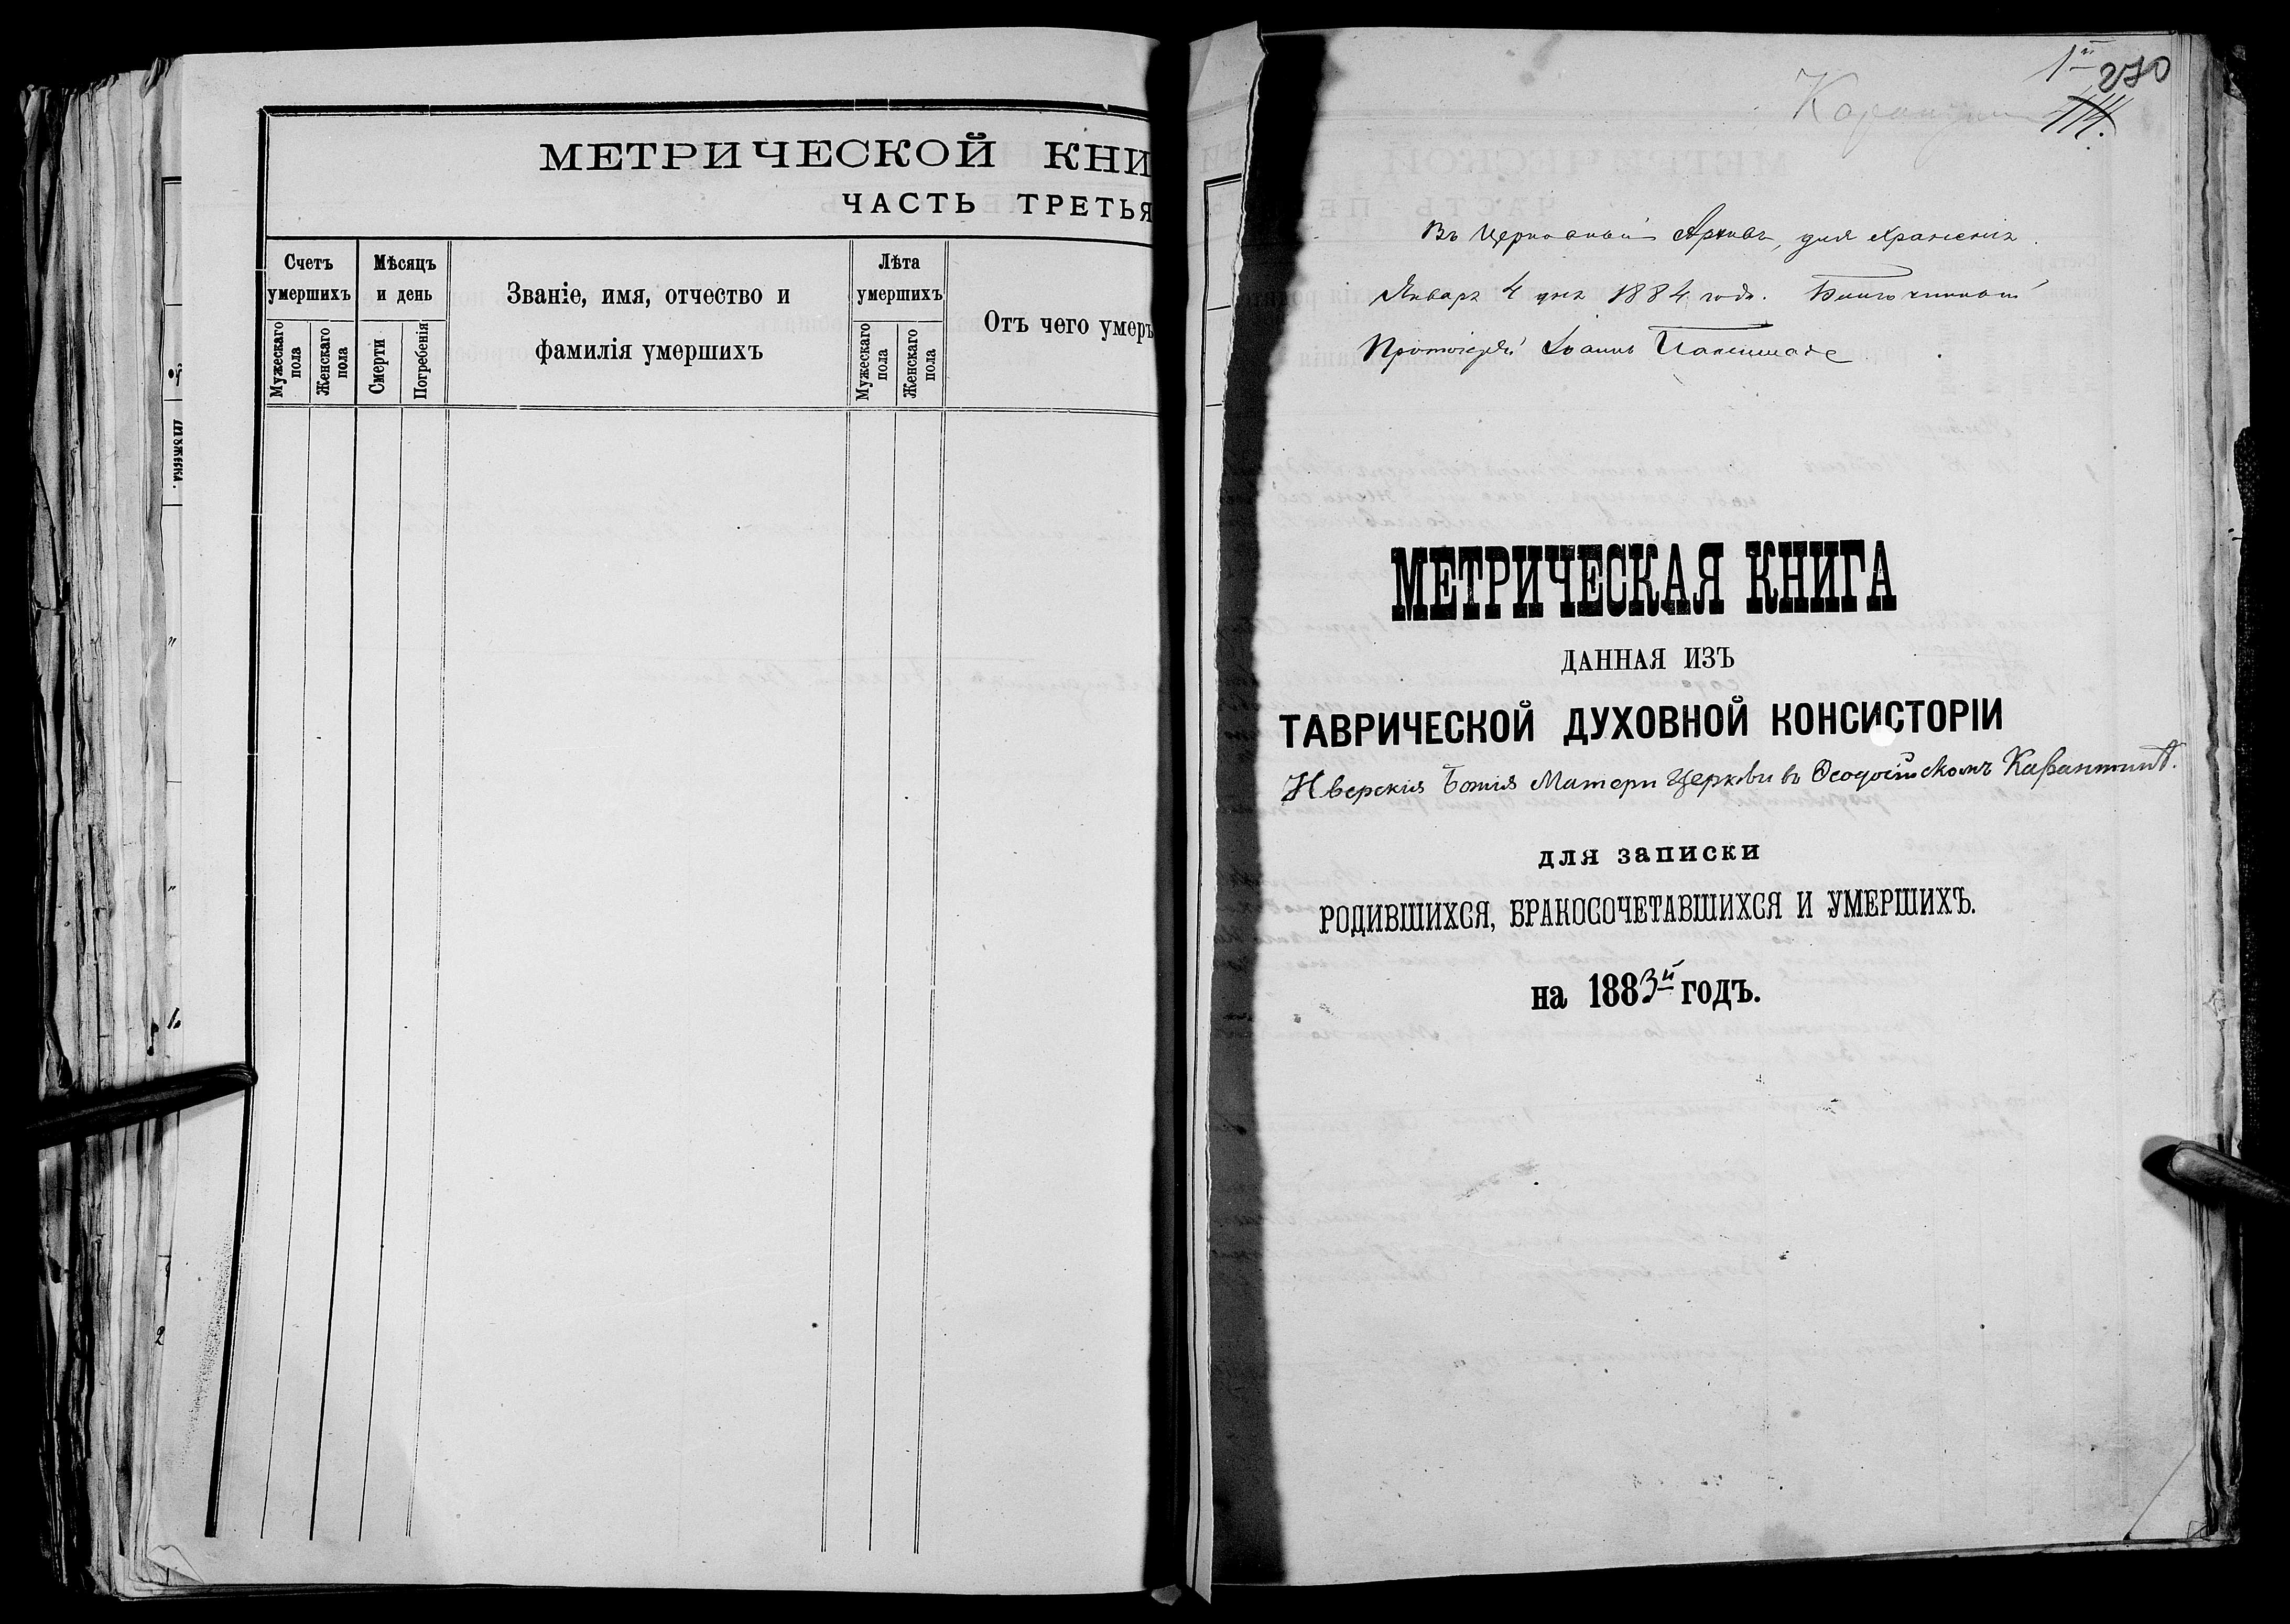 МЕТРИЧЕСКОЙ КНИ
ЧАСТЬ ТРЕТЬЯ
Счетъ умершихъ
Мужескаго пола
Женскаго пола
Мѣсяцъ и день
Смерти
Погребенія
Званіе, имя, отчество и
фамилія умершихъ
Лѣта умершихъ
Мужескаго пола
Женскаго пола
Отъ чего умеръ
1й 270
Въ Церковный Архивъ, для храненія.
Января 4 дня 1884 года. Благочинный
Протоіерей Іоаннъ
МЕТРИЧЕСКАЯ КНИГА
ДАННАЯ ИЗЪ
ТАВРИЧЕСКОЙ ДУХОВНОЙ КОНСИСТОРІИ
Иверскія Божія Матери Церкви въ Ѳеодосійскомъ Карантинѣ.
для записки
РОДИВШИХСЯ, БРАКОСОЧЕТАВШИХСЯ И УМЕРШИХЪ.
на 1883й годъ.